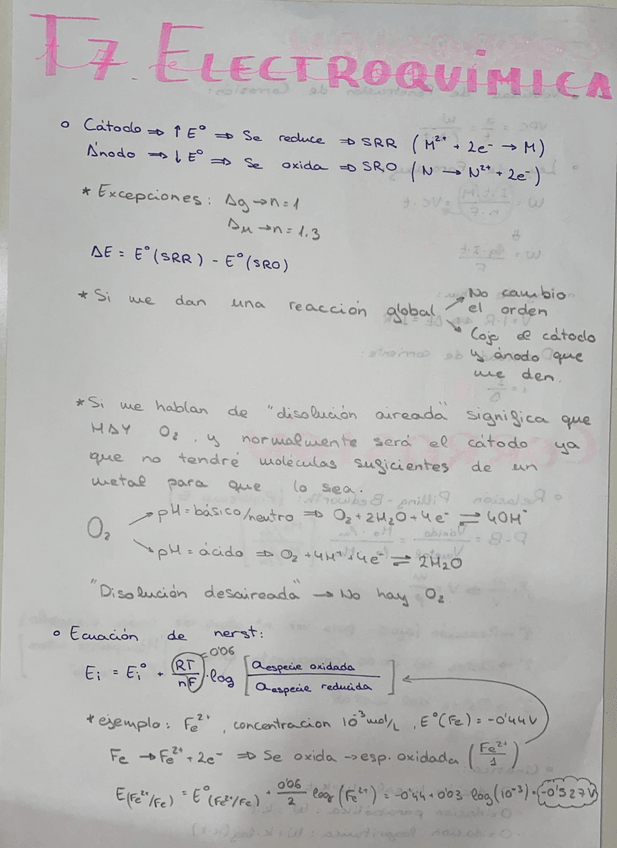 T7. ELECTROQUÍMICA
o Cátodo ⇒ ↑E° ⇒ Se reduce ⇒ SRR (M²⁺ + 2e⁻ → M)
Ánodo ⇒ ↓E° ⇒ Se oxida ⇒ SRO (N → N²⁺ + 2e⁻)
* Excepciones: Ag → n=1
Au → n=1,3
ΔE = E°(SRR) - E°(SRO)
* Si me dan una reacción global → No cambio el orden
→ Cojo el cátodo y ánodo que me den.
* Si me hablan de "disolución aireada" significa que
HAY O₂, y normalmente será el cátodo ya
que no tendré moléculas suficientes de un
metal para que lo sea.
O₂ → pH = básico/neutro ⇒ O₂ + 2H₂O + 4e⁻ ⇌ 4OH⁻
→ pH = ácido ⇒ O₂ + 4H⁺ + 4e⁻ ⇌ 2H₂O
"Disolución desaireada" → No hay O₂.
o Ecuación de nerst:
0'06
Ei = Ei° + (RT/nF) · log [a especie oxidada / a especie reducida]
* ejemplo: Fe²⁺, concentracion 10⁻³ mol/L, E°(Fe) = -0'44V
Fe → Fe²⁺ + 2e⁻ ⇒ Se oxida → esp. oxidada (Fe²⁺/1)
E(Fe²⁺/Fe) = E°(Fe²⁺/Fe) + 0'06/2 log (Fe²⁺) = -0'44 + 0'03 log(10⁻³) = -0'527V